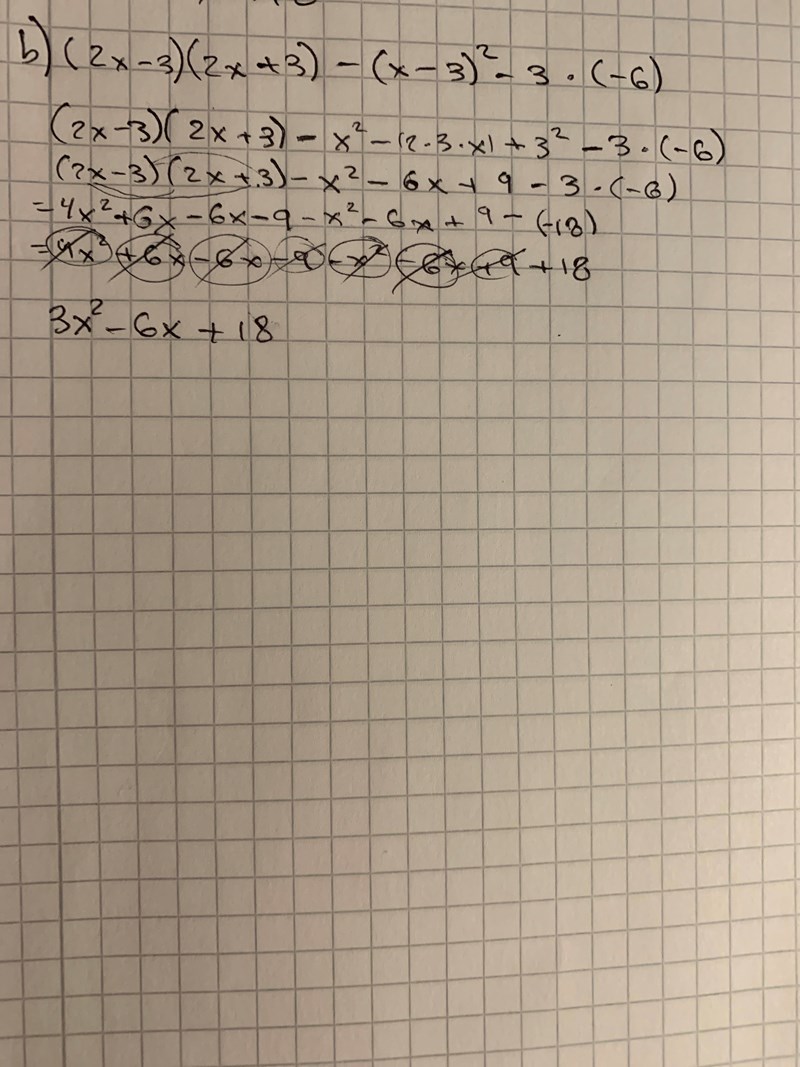 b) (2x-3)(2x+3) - (x-3)² - 3 · (-6)
(2x-3)(2x+3) - x² - (2·3·x) + 3² - 3 · (-6)
(2x-3)(2x+3) - x² - 6x + 9 - 3 · (-6)
= 4x² + 6x - 6x - 9 - x² - 6x + 9 - (-18)
= 4x² + 6x - 6x - 9 - x² - 6x + 9 + 18
3x² - 6x + 18